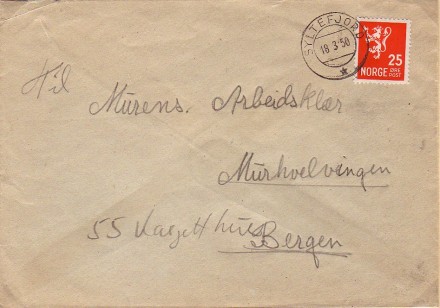 SYLTEFJORD
18.3.50
25
NORGE ØRE
POST
Til
Murens. Arbeidsklær
Murhvelvingen
55 Bergen